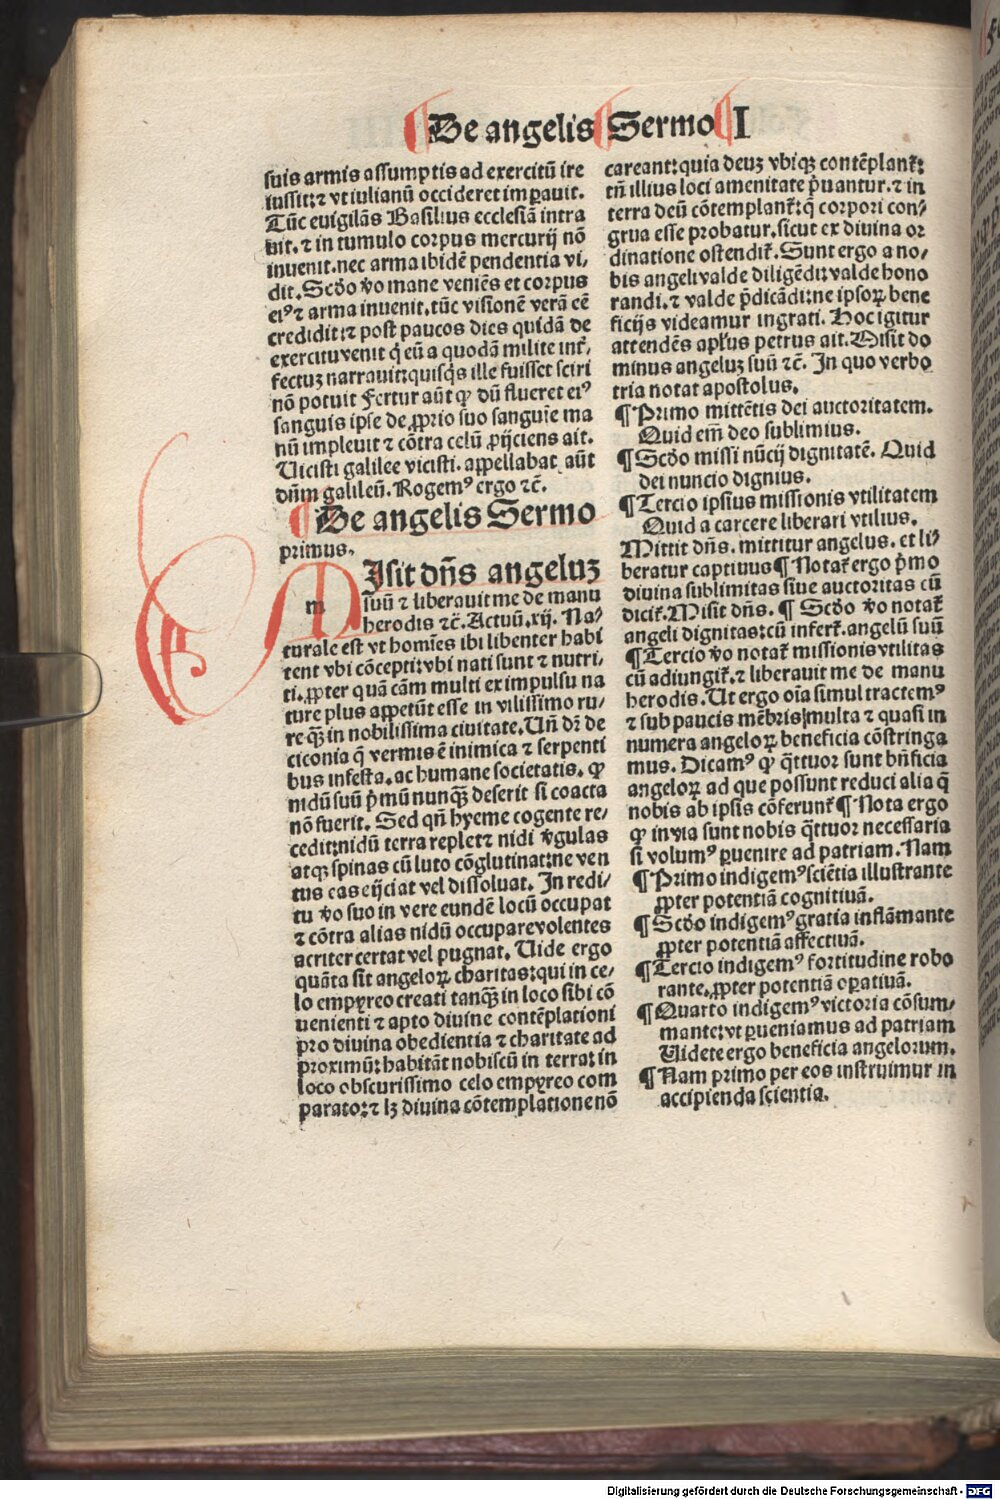 De angelis Sermo I
suis armis assumptis ad exercitū ire
iussit: ⁊ vt iulianū occideret imꝑauit.
Tūc euigilās Basilius ecclesiā intra
uit. ⁊ in tumulo corpus mercurij nō
inuenit. nec arma ibidē pendentia vi/
dit. Scd̄o v̄o mane veniēs et corpus
eiꝰ ⁊ arma inuenit. tūc visionē verā eē
credidit: ⁊ post paucos dies quidā de
exercitu venit q̇ eū a quodā milite int̄/
fectuꝫ narrauit: quisq̇s ille fuisset sciri
nō potuit Fertur aūt ꝙ dū flueret eiꝰ
sanguis ipse de ꝓprio suo sanguīe ma
nū impleuit ⁊ cōtra celū ꝓijciens ait.
Uicisti galilee vicisti. appellabat aūt
dn̄m galileū. Rogemꝰ ergo ⁊c̄.
De angelis Sermo
primus.
m
Isit dn̄s angeluꝫ
suū ⁊ liberauit me de manu
herodis ⁊c̄. Actuū. xij. Na/
turale est vt homīes ibi libenter habi
tent vbi cōcepti: vbi nati sunt ⁊ nutri/
ti. ꝓpter quā cām multi ex impulsu na
ture plus appetūt esse in vilissimo ru/
re q̄ꝫ in nobilissima ciuitate. Un̄ dr̄ de
ciconia q̄ vermis ē inimica ⁊ serpenti
bus infesta. ac humane societatis. ꝙ
nidū suū p̄mū nunq̄ꝫ deserit si coacta
nō fuerit. Sed qn̄ hyeme cogente re/
cedit: nidū terra replet ⁊ nidi v̄gulas
atqꝫ spinas cū luto cōglutinat: ne ven
tus eas eijciat vel dissoluat. In redi/
tu v̄o suo in vere eundē locū occupat
⁊ cōtra alias nidū occupare volentes
acriter certat vel pugnat. Uide ergo
quāta sit angeloꝝ charitas: qui in ce/
lo empyreo creati tanq̄ꝫ in loco sibi cō
uenienti ⁊ apto diuine contēplationi
pro diuina obedientia ⁊ charitate ad
proximū: habitāt nobiscū in terra: in
loco obscurissimo celo empyreo com
parato: ⁊ lꝫ diuina cōtemplatione nō
careant: quia deuꝫ vbiqꝫ contēplant̄:
tn̄ illius loci amenitate p̄uantur. ⁊ in
terra deū cōtemplant̄: q̄ corpori con/
grua esse probatur. sicut ex diuina or
dinatione ostendit̄. Sunt ergo a no/
bis angeli valde diligēdi: valde hono
randi. ⁊ valde p̄dicādi: ne ipsoꝝ bene
ficijs videamur ingrati. Hoc igitur
attendēs apl̄us petrus ait. Misit do
minus angeluꝫ suū ⁊c̄. In quo verbo
tria notat apostolus.
¶ Primo mittētis dei auctoritatem.
Quid em̄ deo sublimius.
¶ Scd̄o missi nūcij dignitatē. Quid
dei nuncio dignius.
¶ Tercio ipsius missionis vtilitatem
Quid a carcere liberari vtilius.
Mittit dn̄s. mittitur angelus. et li/
beratur captiuus ¶ Notat̄ ergo p̄mo
diuina sublimitas siue auctoritas cū
dicit̄. Misit dn̄s. ¶ Scd̄o v̄o notat̄
angeli dignitas: cū infert̄. angelū suū
¶ Tercio v̄o notat̄ missionis vtilitas
cū adiungit̄. ⁊ liberauit me de manu
herodis. Ut ergo oīa simul tractemꝰ
⁊ sub paucis mēbris multa ⁊ quasi in
numera angeloꝝ beneficia cōstringa
mus. Dicamꝰ ꝙ q̄ttuor sunt bn̄ficia
angeloꝝ ad que possunt reduci alia q̄
nobis ab ipsis cōferunt̄ ¶ Nota ergo
ꝙ in via sunt nobis q̄ttuor necessaria
si volumꝰ ꝑuenire ad patriam. Nam
¶ Primo indigemꝰ sciētia illustrante
ꝓpter potentiā cognitiuā.
¶ Scd̄o indigemꝰ gratia inflāmante
ꝓpter potentiā affectiuā.
¶ Tercio indigemꝰ fortitudine robo
rante. ꝓpter potentiā oꝑatiuā.
¶ Quarto indigemꝰ victoria cōsum/
mante: vt ꝑueniamus ad patriam
Uidete ergo beneficia angelorum.
¶ Nam primo per eos instruimur in
accipienda scientia.
Digitalisierung gefördert durch die Deutsche Forschungsgemeinschaft - DFG